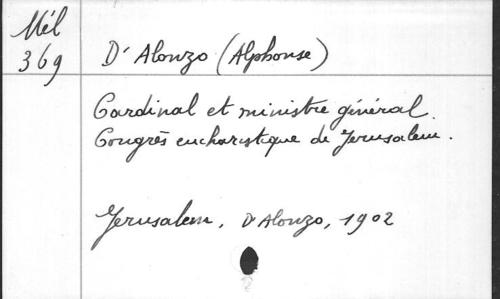 Mél
369
D'Alonzo (Alphonse)
Cardinal et ministre général.
Congrès eucharistique de Jerusalem.
Jerusalem, D'Alonzo, 1902